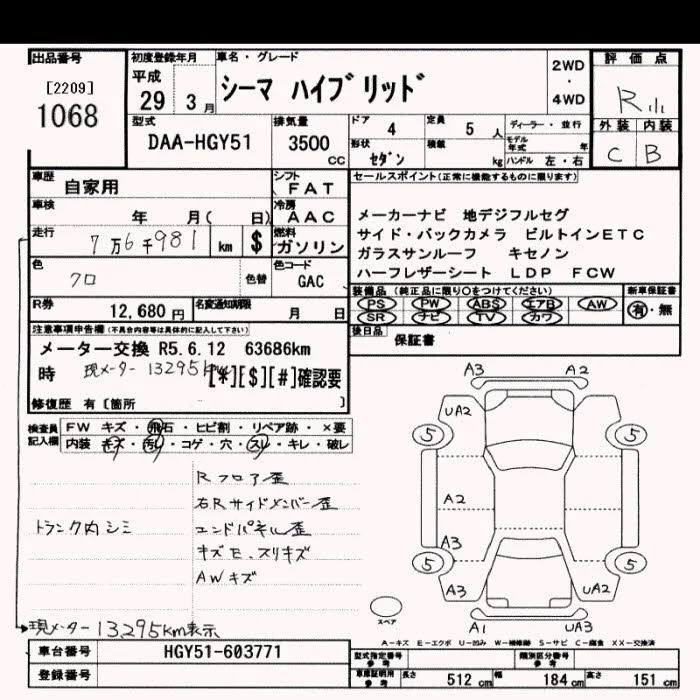 出品番号
[2209]
1068
初度登録年月
平成
29 3月
車名・グレード
シーマ ハイブリッド
2WD
・
4WD
評価点
R
外装 内装
C B
型式
DAA-HGY51
排気量
3500
CC
ドア 4
定員 5 人
形状 セダン
積載 kg
ディーラー・並行
モデル年式 年
ハンドル 左・右
車歴
自家用
シフト
FAT
車検
年 月( 日)
冷房
AAC
走行
7万6千981 km $
燃料
ガソリン
色
クロ
色替
色コード
GAC
R券
12,680円
名変通知期限
月 日
セールスポイント(正常に機能するものに限ります)
メーカーナビ 地デジフルセグ
サイド・バックカメラ ビルトインETC
ガラスサンルーフ キセノン
ハーフレザーシート LDP FCW
装備品(純正品に限り○をつけてください)
PS PW ABS エアB AW
SR ナビ TV カワ
新車保証書
有・無
後日品
保証書
注意事項申告欄(不具合内容等は具体的に記入して下さい)
メーター交換 R5.6.12 63686km
時 現メーター 13295km [*][$][#]確認要
修復歴 有〔箇所
検査員
記入欄
FW キズ・飛石・ヒビ割・リペア跡・×要
内装 キズ・汚れ・コゲ・穴・スレ・キレ・破レ
Rフロア歪
右Rサイドメンバー歪
トランク内シミ
エンドパネル歪
キズE、スリキズ
AWキズ
現メーター 13295km表示
A3 A2
UA2
5 5
A2
A3
5 5
A3 UA2
スペア
A1 UA3
A-キズ E-エクボ U-凹み W-補修跡 S-サビ C-腐食 XX-交換済
車台番号
HGY51-603771
登録番号
型式指定番号
参考
類別区分番号
参考
車庫証明用
参考
長さ 512 cm 幅 184 cm 高さ 151 cm